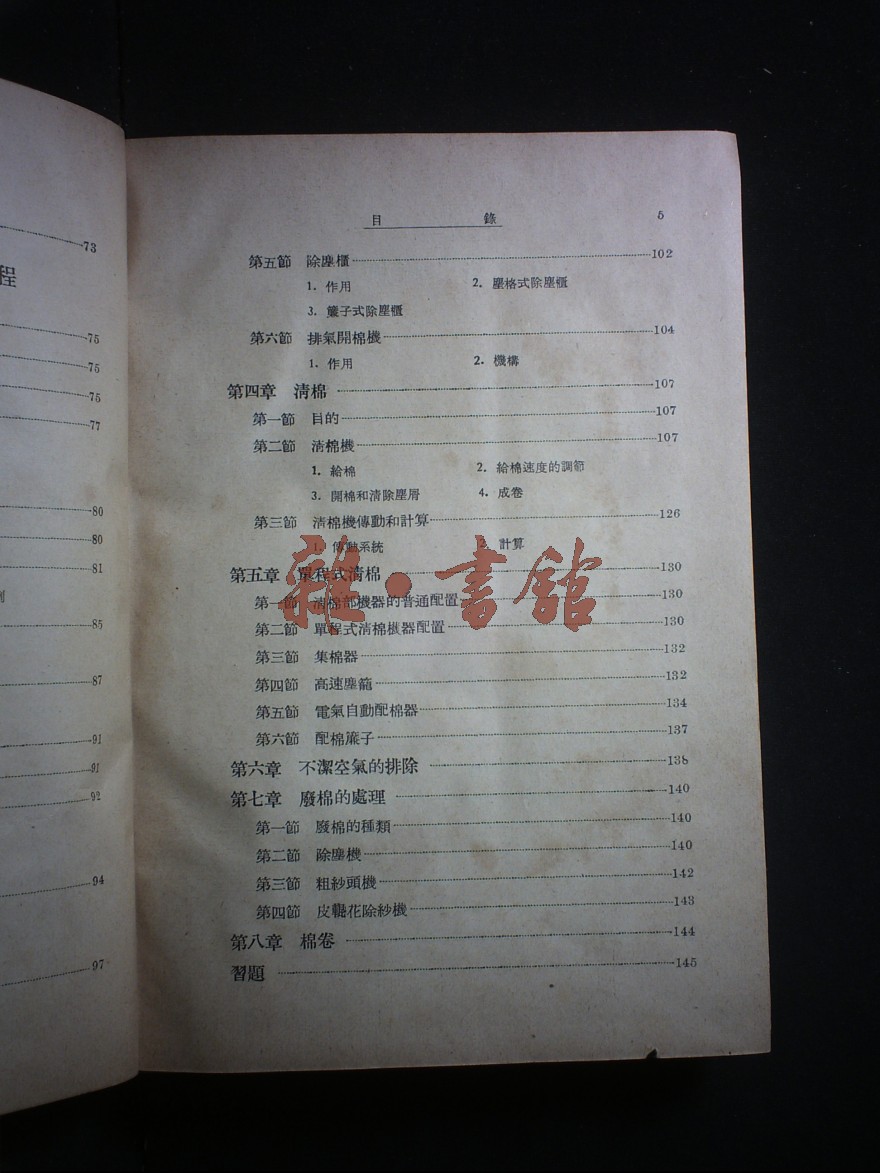 73
程
75
75
75
77
80
80
81
則
85
87
91
91
92
94
97
目 錄 5
第五節 除塵櫃 102
1. 作用 2. 塵格式除塵櫃
3. 簾子式除塵櫃
第六節 排氣開棉機 104
1. 作用 2. 機構
第四章 淸棉 107
第一節 目的 107
第二節 淸棉機 107
1. 給棉 2. 給棉速度的調節
3. 開棉和清除塵屑 4. 成卷
第三節 淸棉機傳動和計算 126
1. 傳動系統 2. 計算
第五章 單程式淸棉 130
第一節 淸棉部機器的普通配置 130
第二節 單程式淸棉機器配置 130
第三節 集棉器 132
第四節 高速塵籠 132
第五節 電氣自動配棉器 134
第六節 配棉簾子 137
第六章 不潔空氣的排除 138
第七章 廢棉的處理 140
第一節 廢棉的種類 140
第二節 除塵機 140
第三節 粗紗頭機 142
第四節 皮輥花除紗機 143
第八章 棉卷 144
習題 145
雜·書館